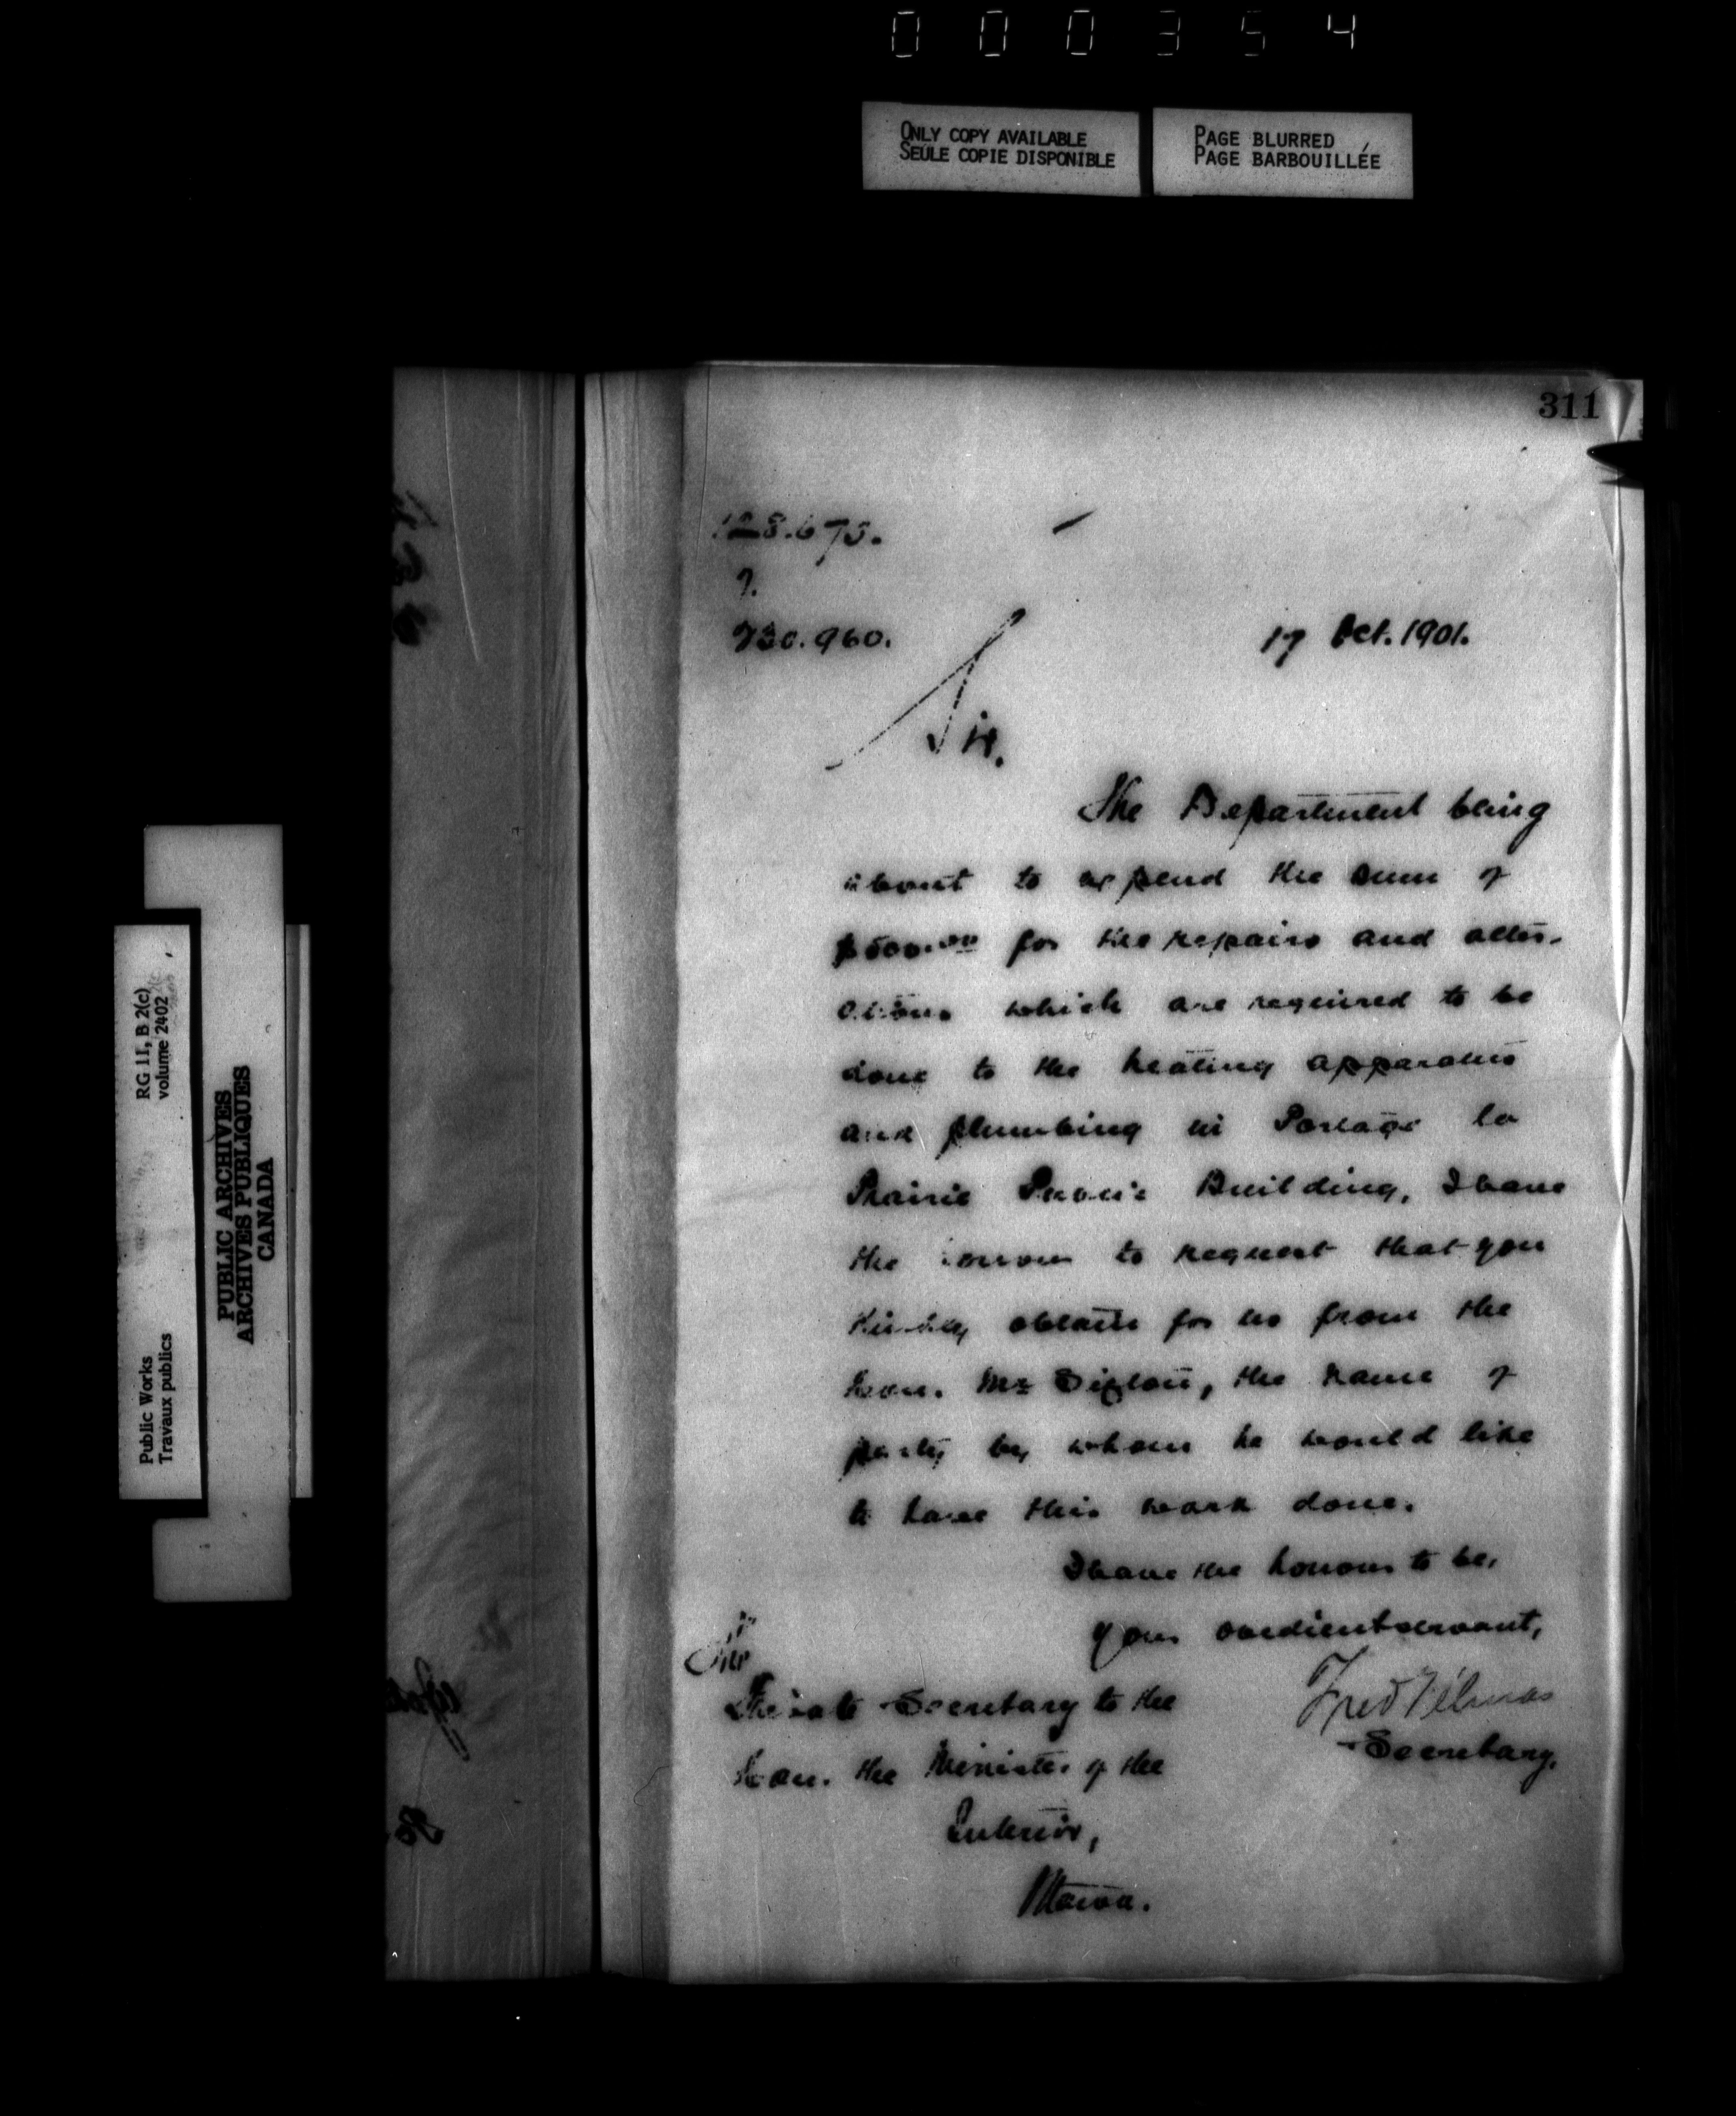 000354
ONLY COPY AVAILABLE
SEULE COPIE DISPONIBLE
PAGE BLURRED
PAGE BARBOUILLÉE
311
128.675.
?.
230.960.
17 Oct. 1901.
Sir.
The Department being
about to expend the sum of
$500.00 for the repairs and alter-
ations which are required to be
done to the heating apparatus
and plumbing in Portage la
Prairie Public Building, I have
the honour to request that you
kindly obtain for us from the
hon. Mr Sifton, the name of
party by whom he would like
to have this work done.
I have the honour to be,
your obedient servant,
Private Secretary to the
Fred Gélinas
hon. the Minister of the
Secretary.
Interior,
Ottawa.
RG 11, B 2(c)
volume 2402
Public Works
Travaux publics
PUBLIC ARCHIVES
ARCHIVES PUBLIQUES
CANADA